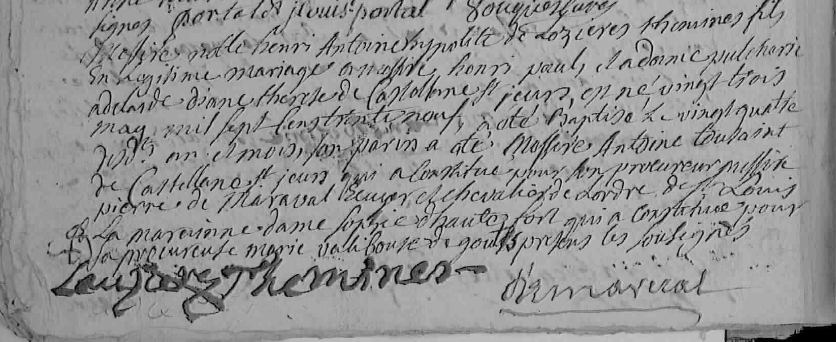 signes portal louis portal
Messire noble henri Antoine hypolite de Lozieres themines fils
En legitime mariage a messire henri paul, et a dame pulcherie
adelaide diane therese de Castellane st jeurs, est né vingt trois
may mil sept cens trente neuf, a oté Baptise Le vingt quatre
dusds an et mois son parin a oté Messire Antoine toussaint
de Castellane st jeurs qui a constitue pour son procureur messire
pierre de Maraval Ecuyer et chevalier de Lordre de St Louis
La maraine dame sophie d'hautefort qui a constitue pour
sa procureuse marie de presens les sousignes
Lauzieres Themines
De maraval